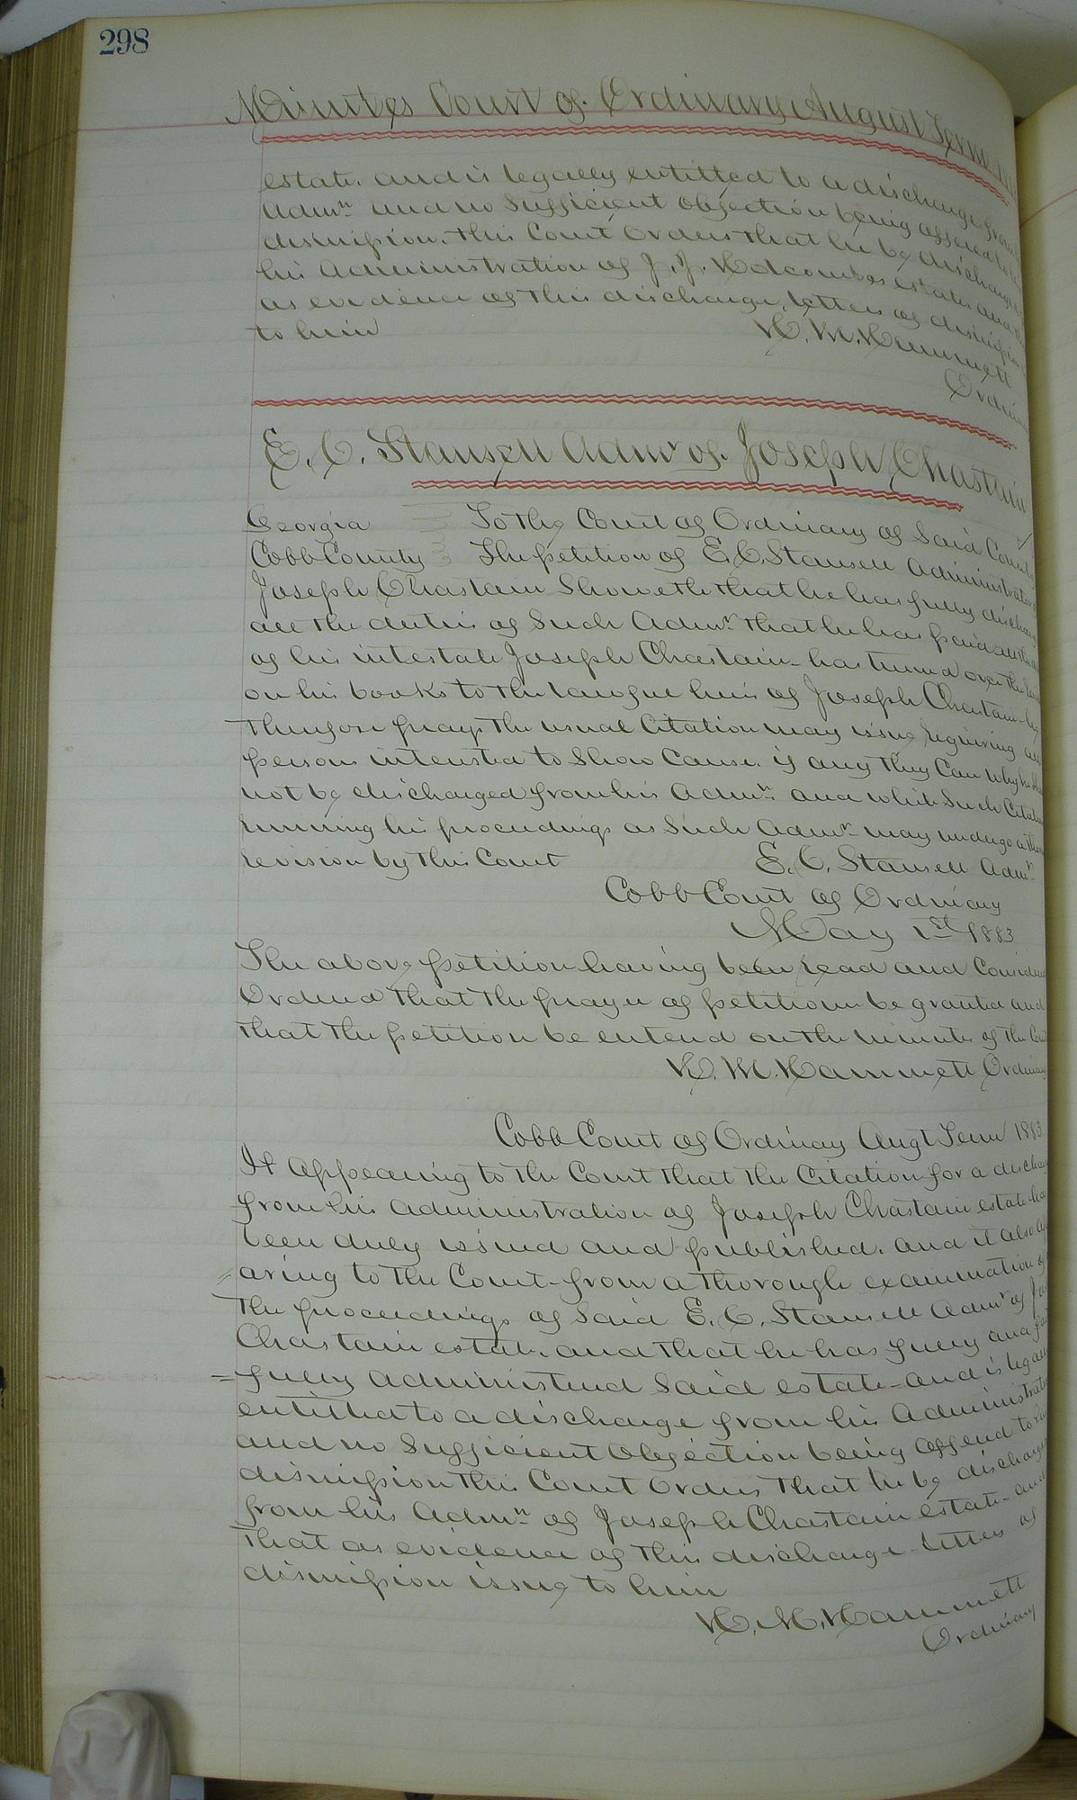 298
Minutes Court of Ordinary August Term
estate. and is legally entitled to a discharge from
Admn and no Sufficient Objection being offered to
dismission. this Court Orders that he be discharged
his Administration of J. J. estate and
as evidence of this discharge, letters of dismission
to him H. M. Hammett
Ordinary
E. C. Stansell Admr of Joseph Chastain
Georgia To the Court of Ordinary of Said County
Cobb County The petition of E. C. Stansell Administrator
Joseph Chastain Showeth that he has fully discharged
all the duties of Such Admr. that he has paid all the
of his intestate Joseph Chastain - has turned over the
on his books to the heirs of Joseph Chastain - he
therefore prays the usual Citation may issue requiring all
persons interested to Show Cause. if any they Can why he should
not be discharged from his Admn and while Such Citation
running his proceedings as Such Admr may undergo a thorough
revision by this Court E. C. Stansell Admr
Cobb Court of Ordinary
May 1st 1883
The above petition having been read and Considered
Ordered that the prayer of petitioner be granted and
that the petition be entered on the minutes of the Court
H. M. Hammett Ordinary
Cobb Court of Ordinary Augt Term 1883
It Appearing to the Court that the Citation for a discharge
from his administration of Joseph Chastain estate has
been duly issued and published. and it also appe
aring to the Court from a thorough examination of
the proceedings of Said E. C. Stansell Admr of Jos
Chastain estate. and that he has fully and faith
=fully administered Said estate - and is legally
entitled to a discharge from his Administration
and no Sufficient Objection being offered to his
dismission this Court Orders that he be discharged
from his Admn of Joseph Chastain estate - and
that as evidence of this discharge - letters of
dismission issue to him
H. M. Hammett
Ordinary